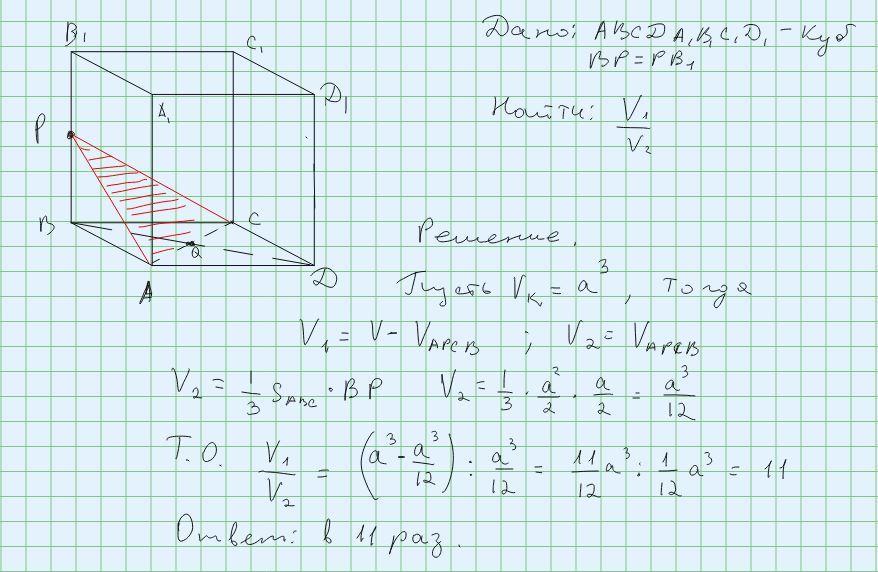 B₁
C₁
Дано: ABCDA₁B₁C₁D₁ - куб
BP = PB₁
A₁
D₁
Найти: V₁/V₂
P
B
C
Q
A
D
Решение.
Пусть Vк = a³, тогда
V₁ = V - V_APCB ; V₂ = V_APCB
V₂ = 1/3 S_ABC · BP V₂ = 1/3 · a²/2 · a/2 = a³/12
Т.О. V₁/V₂ = (a³ - a³/12) : a³/12 = 11/12 a³ : 1/12 a³ = 11
Ответ: в 11 раз.